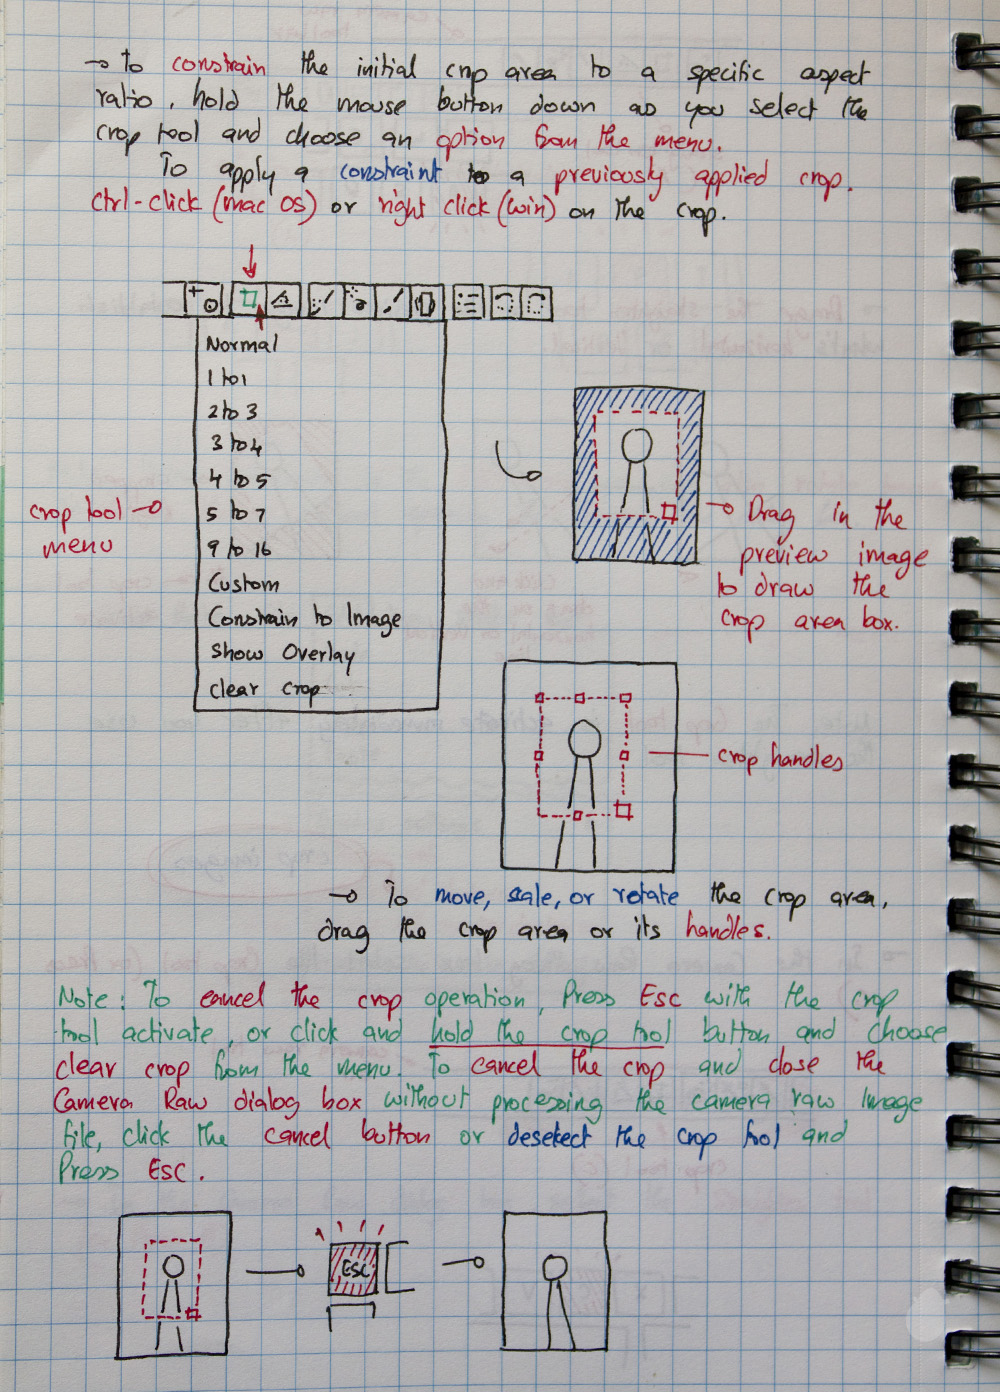 → To constrain the initial crop area to a specific aspect
ratio, hold the mouse button down as you select the
crop tool and choose an option from the menu.
To apply a constraint to a previously applied crop.
Ctrl-click (mac os) or right click (win) on the crop.
Normal
1 to 1
2 to 3
3 to 4
4 to 5
5 to 7
9 to 16
Custom
Constrain to Image
Show Overlay
clear crop
crop tool
menu
Drag in the
preview image
to draw the
crop area box.
crop handles
→ To move, scale, or rotate the crop area,
drag the crop area or its handles.
Note: To cancel the crop operation, Press Esc with the crop
tool activate, or click and hold the crop tool button and choose
clear crop from the menu. To cancel the crop and close the
Camera Raw dialog box without processing the camera raw Image
file, click the cancel button or deselect the crop tool and
Press ESC.
ESC